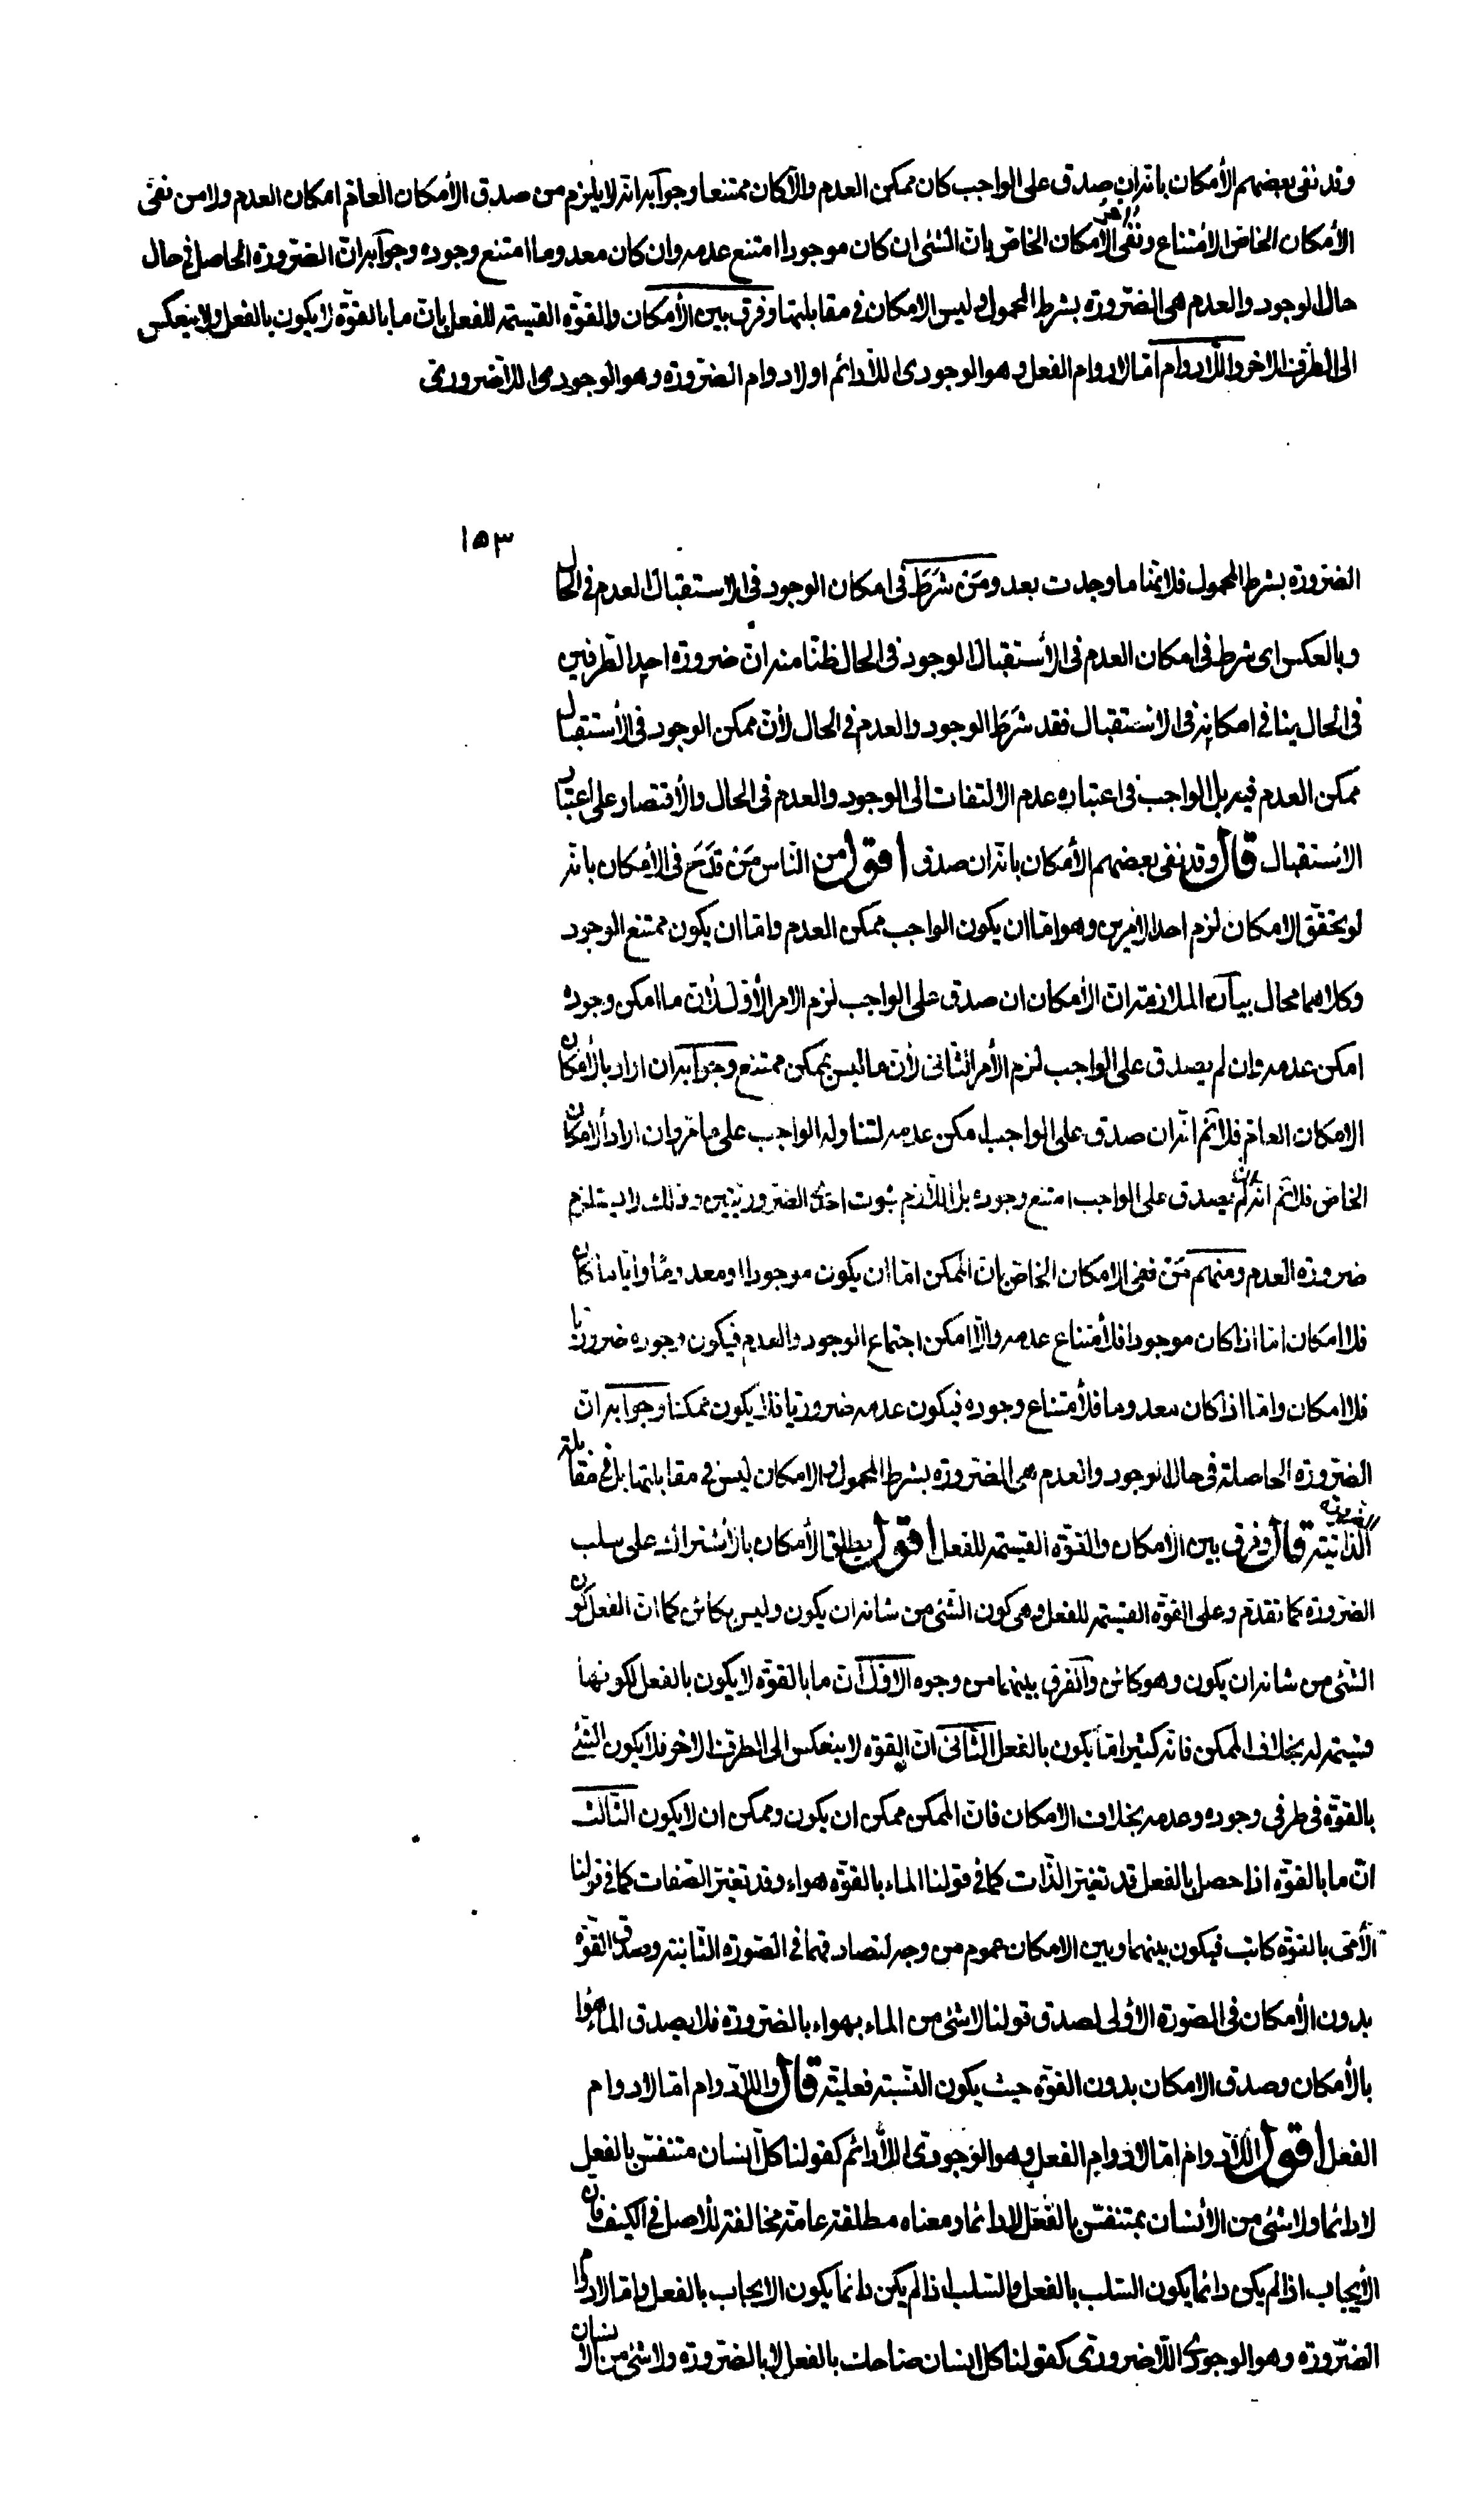 وقد نفى بعضهم الأمكان بانه ان صدق على الواجب كان ممكن العدم والا كان ممتنعا وجوابه انه لا يلزم من صدق الأمكان العام امكان العدم ولا من نفى
الأمكان الخاص الامتناع ونفى الأمكان الخاص بان الشئ ان كان موجودا امتنع عدمه وان كان معدوما امتنع وجوده وجوابه ان الضرورة الحاصل فى حال
حال الوجود والعدم هى الضرورة بشرط المحمول وليس الامكان فى مقابلتها وفرق بين الأمكان والقوة القسيمة للفعل بان ما بالقوة لا يكون بالفعل ولا ينعكس
الى الطرف الاخر واللادوام اما لادوام الفعل وهو الوجودى اللادائم او لادوام الضرورة وهو الوجودى اللاضرورى
١٥٣
الضرورة بشرط المحمول فلانها ما وجدت بعد ومَنْ شَرَطَ فى امكان الوجود فى الاستقبال العدم فى الحال
وبالعكس اى شرط فى امكان العدم فى الأستقبال الوجود فى الحال ظنا منه ان ضرورة احد الطرفين
فى الحال ينافى امكانه فى الاستقبال فقد شَرَطَ الوجود والعدم فى الحال لأن ممكن الوجود فى الأستقبال
ممكن العدم فيه بل الواجب فى اعتباره عدم الالتفات الى الوجود والعدم فى الحال والأقتصار على اعتبار
الاستقبال قال وقد نفى بعضهم الأمكان بانه ان صدق اقول من الناس مَنْ قَدَحَ فى الأمكان بانه
لو تحقق الامكان لزم احد الامرين وهو اما ان يكون الواجب ممكن العدم واما ان يكون ممتنع الوجود
وكلاهما محال بيان الملازمة ان الأمكان ان صدق على الواجب لزم الامر الأول لأن ما امكن وجوده
امكن عدمه وان لم يصدق على الواجب لزم الأمر الثانى لأن ما ليس بممكن ممتنع وجوابه ان اراد بالأمكان
الامكان العام فلانم انه ان صدق على الواجب امكن عدمه لتناوله الواجب على ما مر وان اراد الامكان
الخاص فلانم انه ان لم يصدق على الواجب امتنع وجوده بل اللازم ثبوت احدى الضرورتين وذلك لا يستلزم
ضرورة العدم ومنهم مَنْ نفى الامكان الخاص بان الممكن اما ان يكون موجودا او معدوما وايا ما كان
فلا امكان اما اذا كان موجودا فلأمتناع عدمه والا امكن اجتماع الوجود والعدم فيكون وجوده ضروريا
فلا امكان واما اذا كان معدوما فلأمتناع وجوده فيكون عدمه ضروريا فلا يكون ممكنا وجوابه ان
الضرورة الحاصلة فى حال الوجود والعدم هى الضرورة بشرط المحمول والامكان ليس فى مقابلتها بل فى مقابلة
الضرورة الذاتية قال وفرق بين الأمكان والقوة القسيمة للفعل اقول يطلق الأمكان بالأشتراك على سلب
الضرورة كما تقدم وعلى القوة القسيمة للفعل وهى كون الشئ من شانه ان يكون وليس بكائن كما ان الفعل كون
الشئ من شانه ان يكون وهو كائن والفرق بينهما من وجوه الاول ان ما بالقوة لا يكون بالفعل لكونها
قسيمة له بخلاف الممكن فانه كثيرا ما يكون بالفعل الثانى ان القوة لا ينعكس الى الطرف الاخر فلا يكون الشئ
بالقوة فى طرفى وجوده وعدمه بخلاف الامكان فان الممكن ممكن ان يكون وممكن ان لا يكون الثالث
ان ما بالقوة اذا حصل بالفعل قد تغير الذات كما فى قولنا الماء بالقوة هواء وقد تغير الصفات كما فى قولنا
الأمى بالقوة كاتب فيكون بينهما وبين الامكان عموم من وجه لتصادقهما فى الصورة الثانية وصدق القوة
بدون الأمكان فى الصورة الأولى لصدق قولنا لا شئ من الماء بهواء بالضرورة فلا يصدق الماء هواء
بالأمكان وصدق الامكان بدون القوة حيث يكون النسبة فعلية قال واللادوام اما لادوام
الفعل اقول اللادوام اما لادوام الفعل وهو الوجودى اللادائم كقولنا كل انسان متنفس بالفعل
لا دائما ولا شئ من الأنسان بمتنفس بالفعل لا دائما ومعناه مطلقة عامة مخالفة للأصل فى الكيف فان
الأيجاب اذا لم يكن دائما يكون السلب بالفعل والسلب اذا لم يكن دائما يكون الايجاب بالفعل واما لادوام
الضرورة وهو الوجودى اللاضرورى كقولنا كل انسان ضاحك بالفعل لا بالضرورة ولا شئ من الانسان